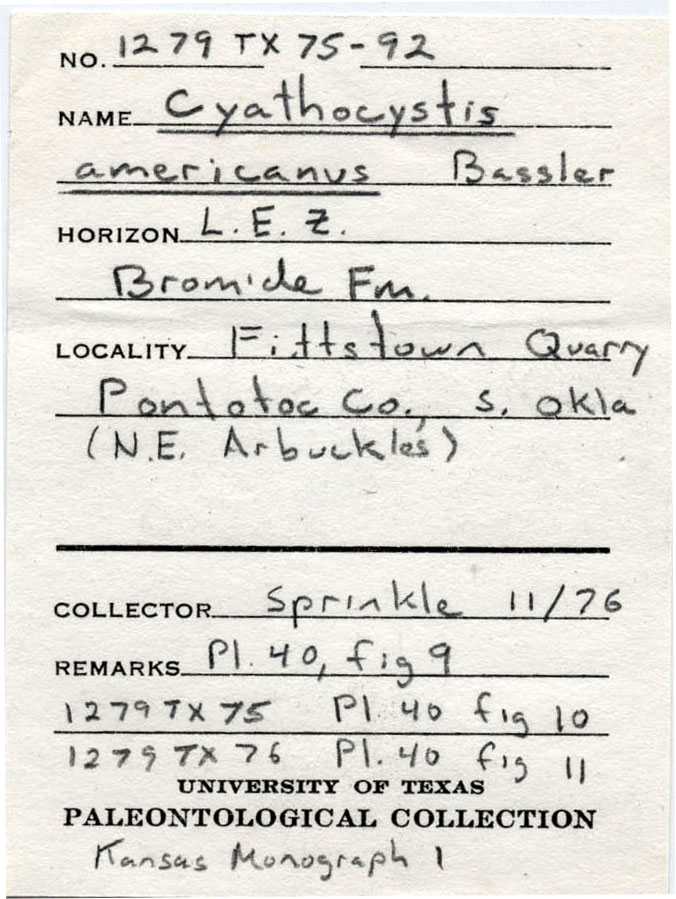 NO. 1279 TX 75-92
NAME Cyathocystis
americanus Bassler
HORIZON L.E.Z.
Bromide Fm.
LOCALITY Fittstown Quarry
Pontotoc Co., S. Okla
(N.E. Arbuckles)
COLLECTOR Sprinkle 11/76
REMARKS Pl. 40, fig 9
1279 TX 75 Pl. 40 fig 10
1279 TX 76 Pl. 40 fig 11
UNIVERSITY OF TEXAS
PALEONTOLOGICAL COLLECTION
Kansas Monograph 1